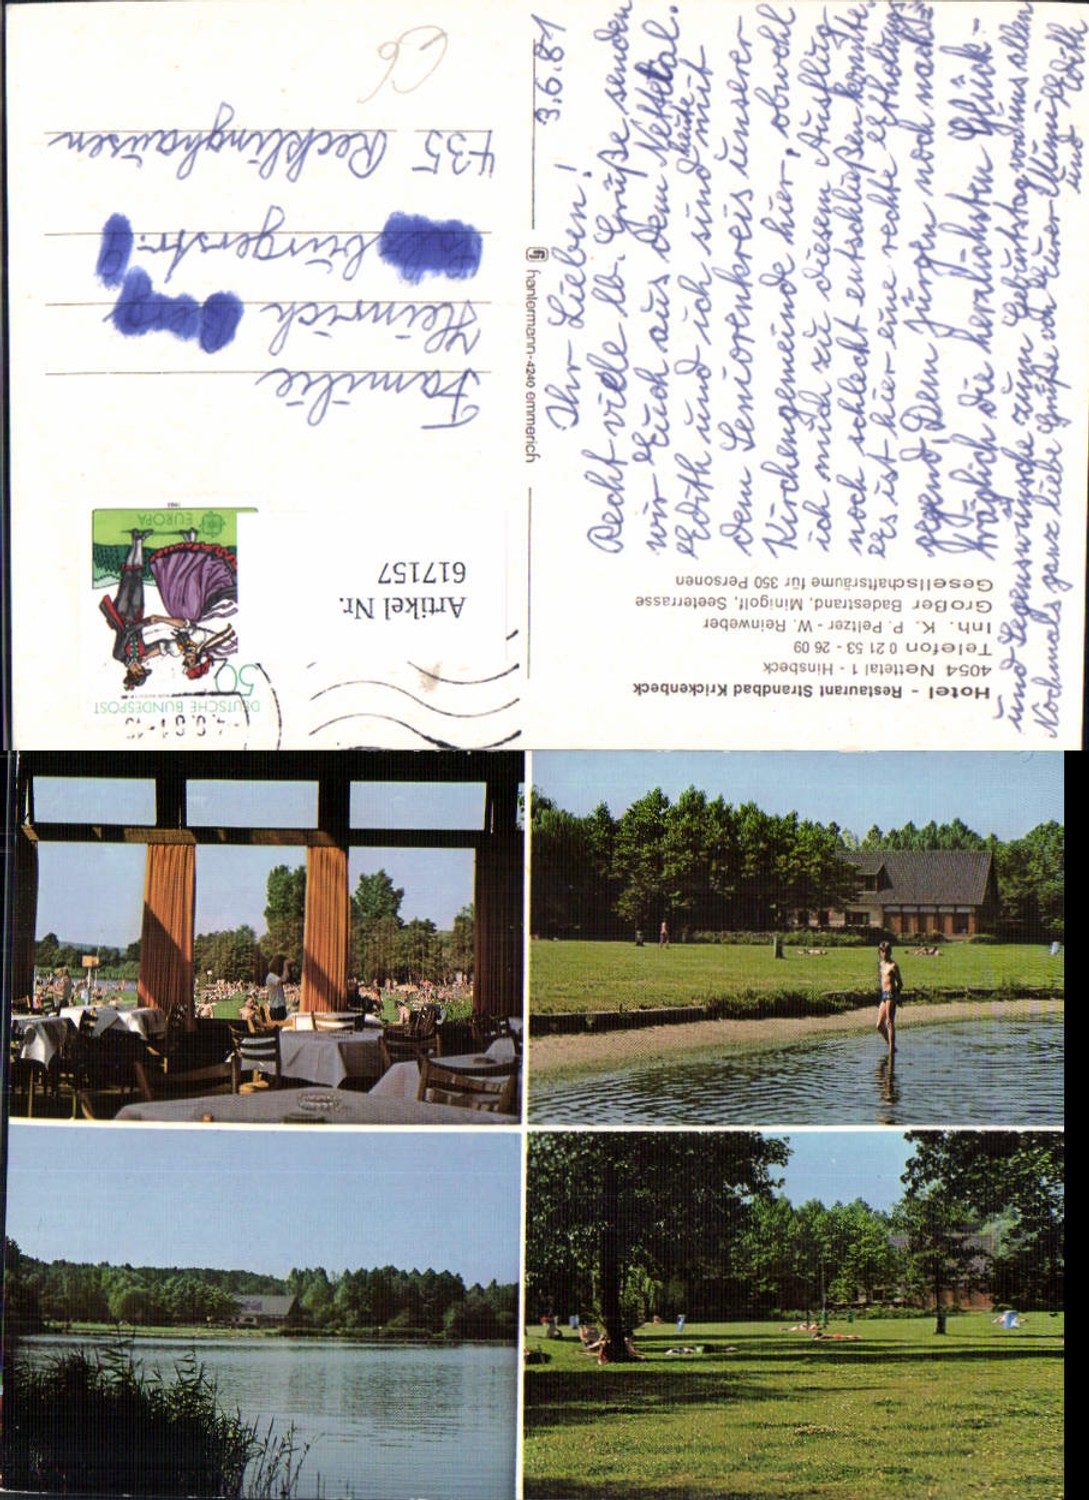 Hotel - Restaurant Strandbad Krickenbeck
4054 Nettetal 1 - Hinsbeck
Telefon 0 21 53 - 26 09
Inh. K. P. Peltzer - W. Reinweber
Großer Badestrand, Minigolf, Seeterrasse
Gesellschaftsräume für 350 Personen
3.6.81
Ihr Lieben!
Recht viele lb. Grüße senden
wir Euch aus dem Nettetal.
Edith und ich sind heute mit
dem Seniorenkreis unserer
Kirchengemeinde hier, obwohl
ich mich zu diesem Ausflug
noch schlecht entschließen konnte.
Es ist hier eine rechte Erholungs-
gegend. Dem Jürgen noch nach-
träglich die herzlichsten Glück-
und Segenswünsche zum Geburtstag von uns allen
Nochmals ganz liebe Grüße von Eurer
und Edith
hantermann · 4240 emmerich
DEUTSCHE BUNDESPOST
50
EUROPA
1981
Artikel Nr.
617157
Familie
Heinrich
burgerstr.
435 Recklinghausen